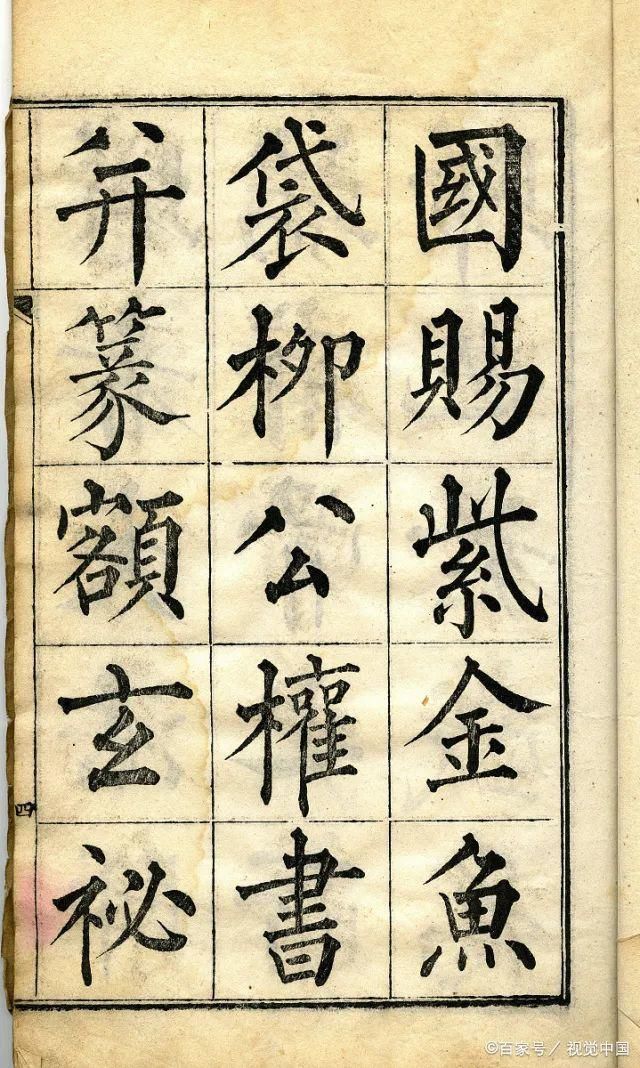 國賜紫金魚
袋柳公權書
并篆額玄
祕
四
©百家号／视觉中国